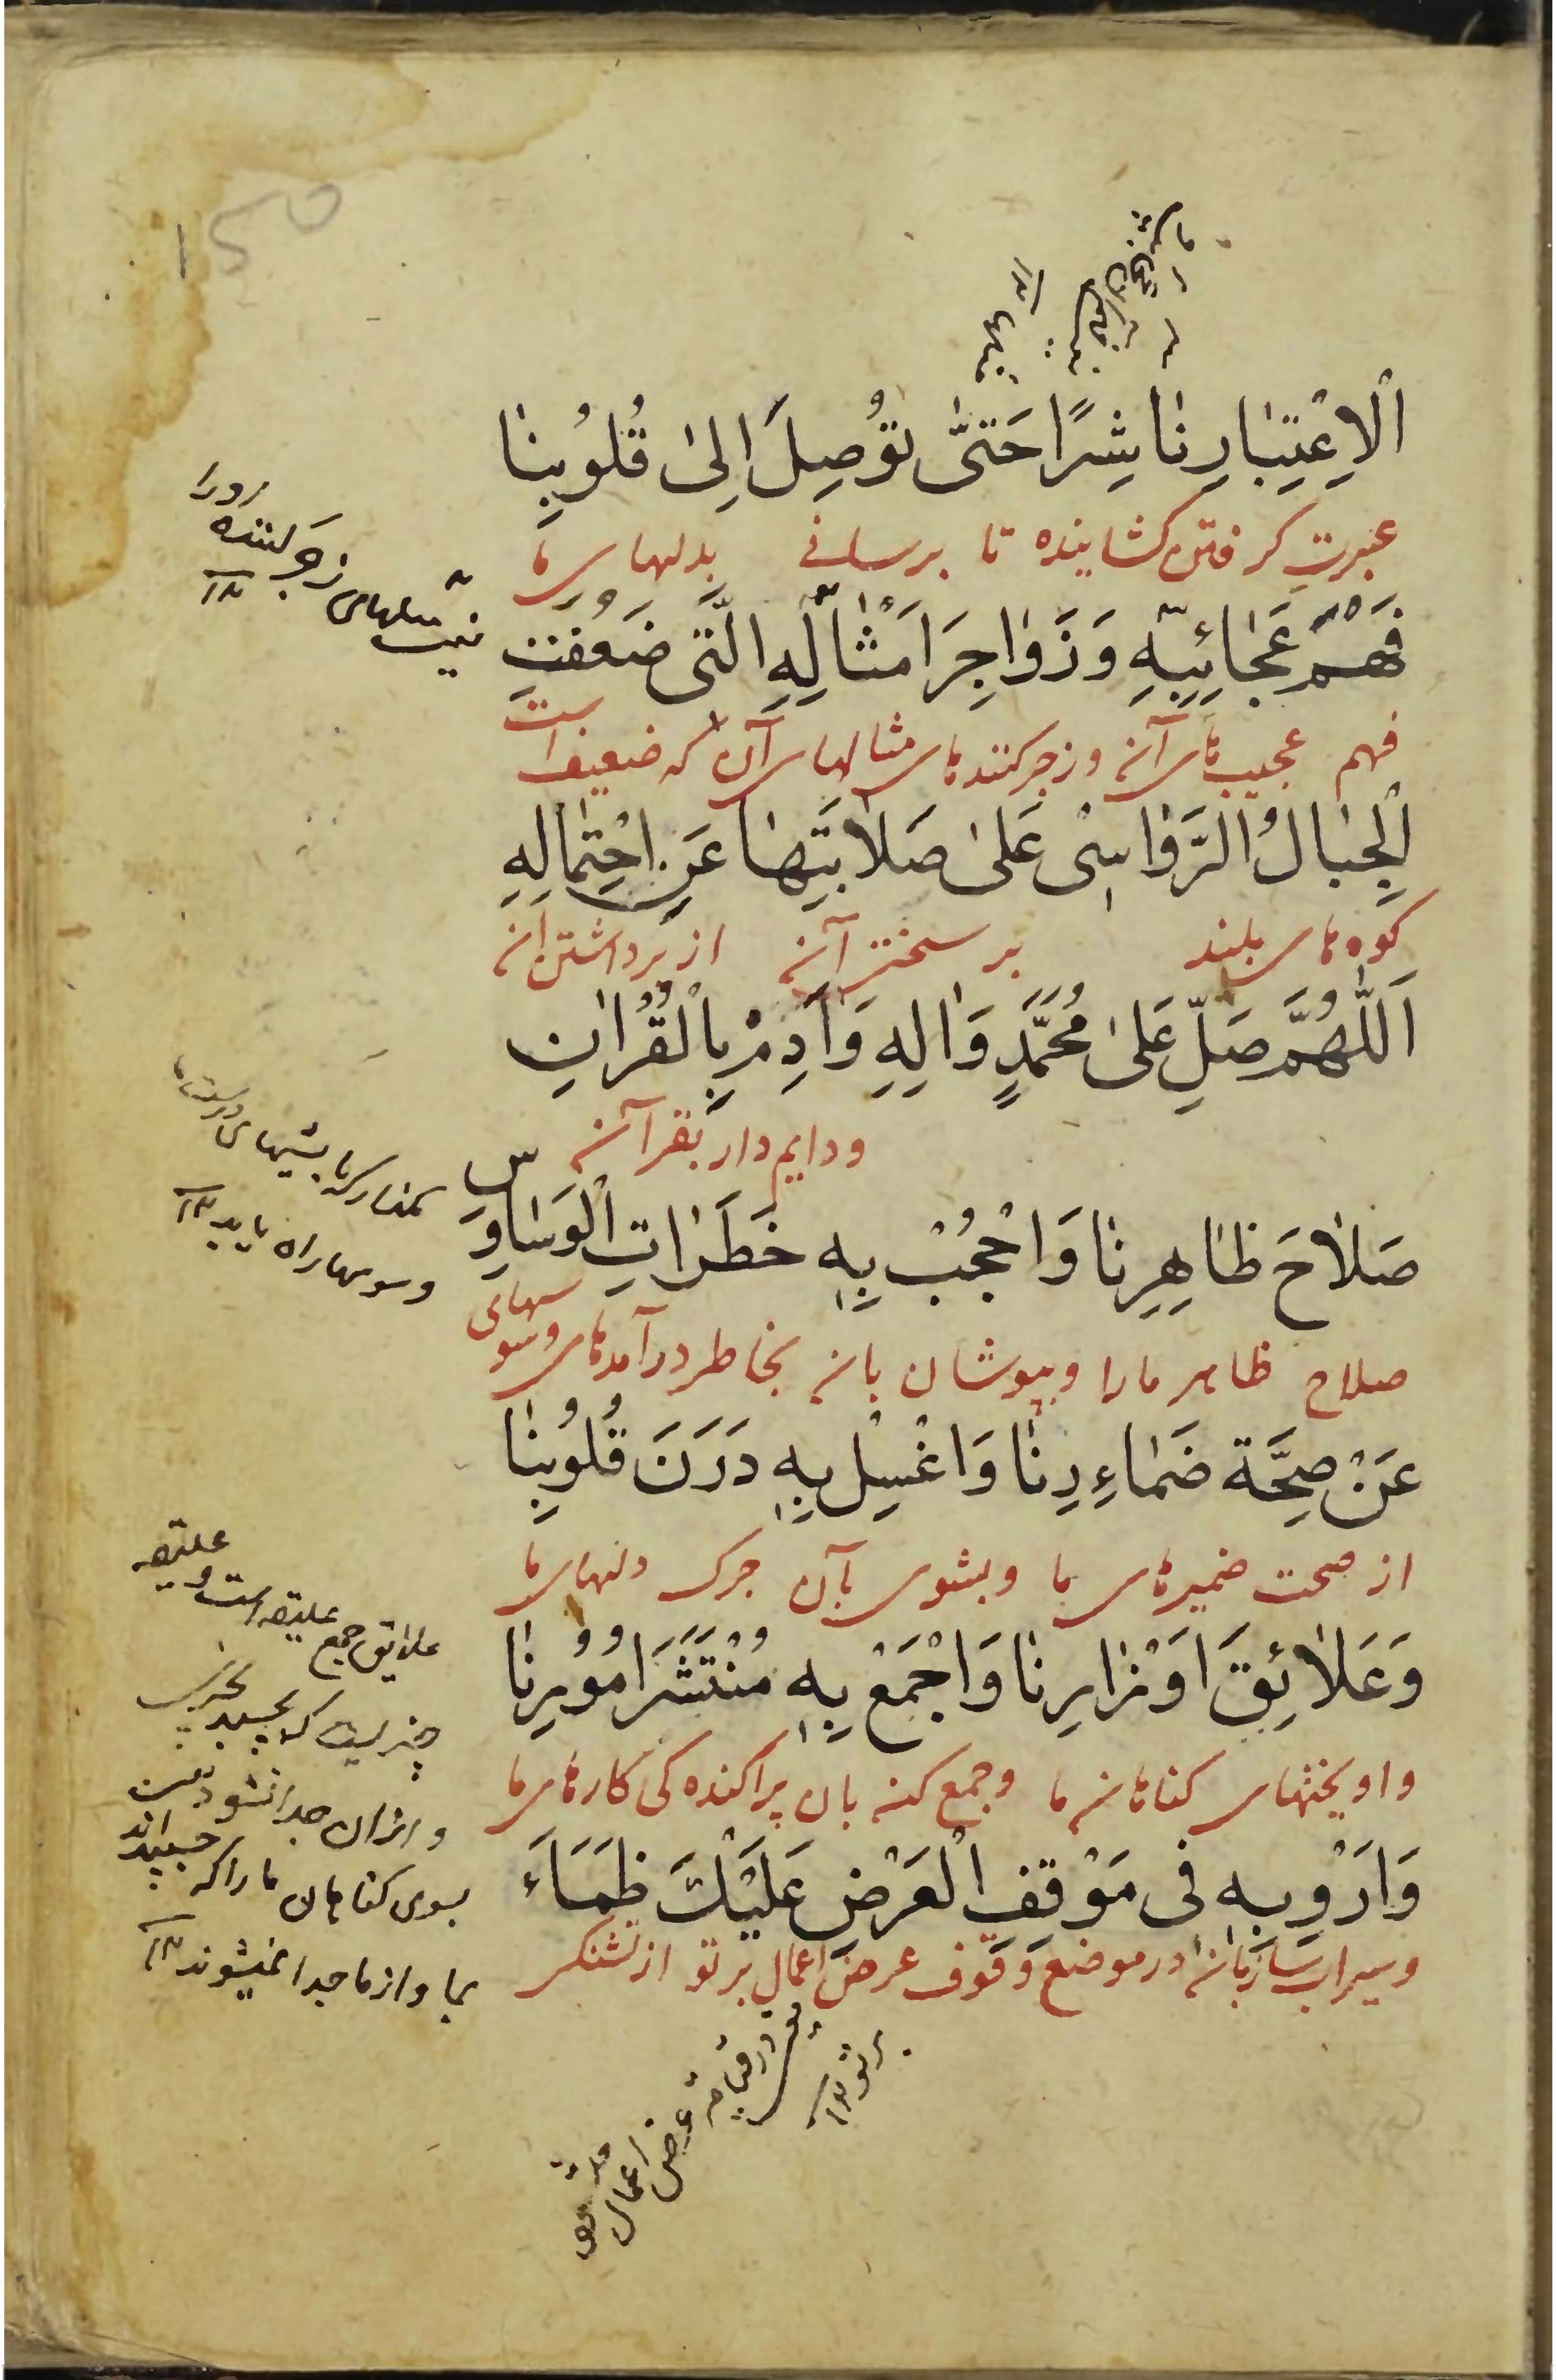 اَلْاِعْتِبَارِ نَاشِرًا حَتّٰى تُوْصِلَ اِلىٰ قُلُوْبِنَا
عبرت گرفتن کشاینده تا برسانے بدلهای ما
فَهْمَ عَجَائِبِهِ وَزَوَاجِرَ اَمْثَالِهِ الَّتِى ضَعُفَتِ
فهم عجیب‌های آن و زجر کننده‌های مثالهای آن که ضعیف است
الْجِبَالُ الرَّوَاسِىْ عَلىٰ صَلَابَتِهَا عَنِ احْتِمَالِهِ
کوه‌های بلند بر سختی آن از برداشتن آن
اَللّٰهُمَّ صَلِّ عَلىٰ مُحَمَّدٍ وَاٰلِهِ وَاَدِمْ بِالْقُرْاٰنِ
و دایم دار بقرآن
صَلَاحَ ظَاهِرِنَا وَاحْجُبْ بِهِ خَطَرَاتِ الْوَسَاوِسِ
صلاح ظاهر ما را و بپوشان بان بخاطر درآمدهای وسوسهای
عَنْ صِحَّةِ ضَمَاءِرِنَا وَاغْسِلْ بِهِ دَرَنَ قُلُوْبِنَا
از صحت ضمیرهای ما و بشوی بآن چرک دلهای ما
وَعَلَائِقَ اَوْزَارِنَا وَاجْمَعْ بِهِ مُنْتَشَرَ اُمُوْرِنَا
و اویختهای کناهان ما و جمع کن بان پراکنده کی کارهای ما
وَاَرْوِ بِهِ فِى مَوْقِفِ الْعَرْضِ عَلَيْكَ ظَمَاءَ
و سیراب ساز بان در موضع وقوف عرض اعمال بر تو از تشنگی
زجر کننده
وسوسها راه یابد ۱۲
علایق جمع علیقه است و علیقه
چیزیست که بچسپد بچیزی
و ازان جدا نشود
بسوی کناهان ما را که چسپیده‌اند
بما و از ما جدا نمیشوند ۱۲
در قیامة عرض اعمال
بر تو ۱۲